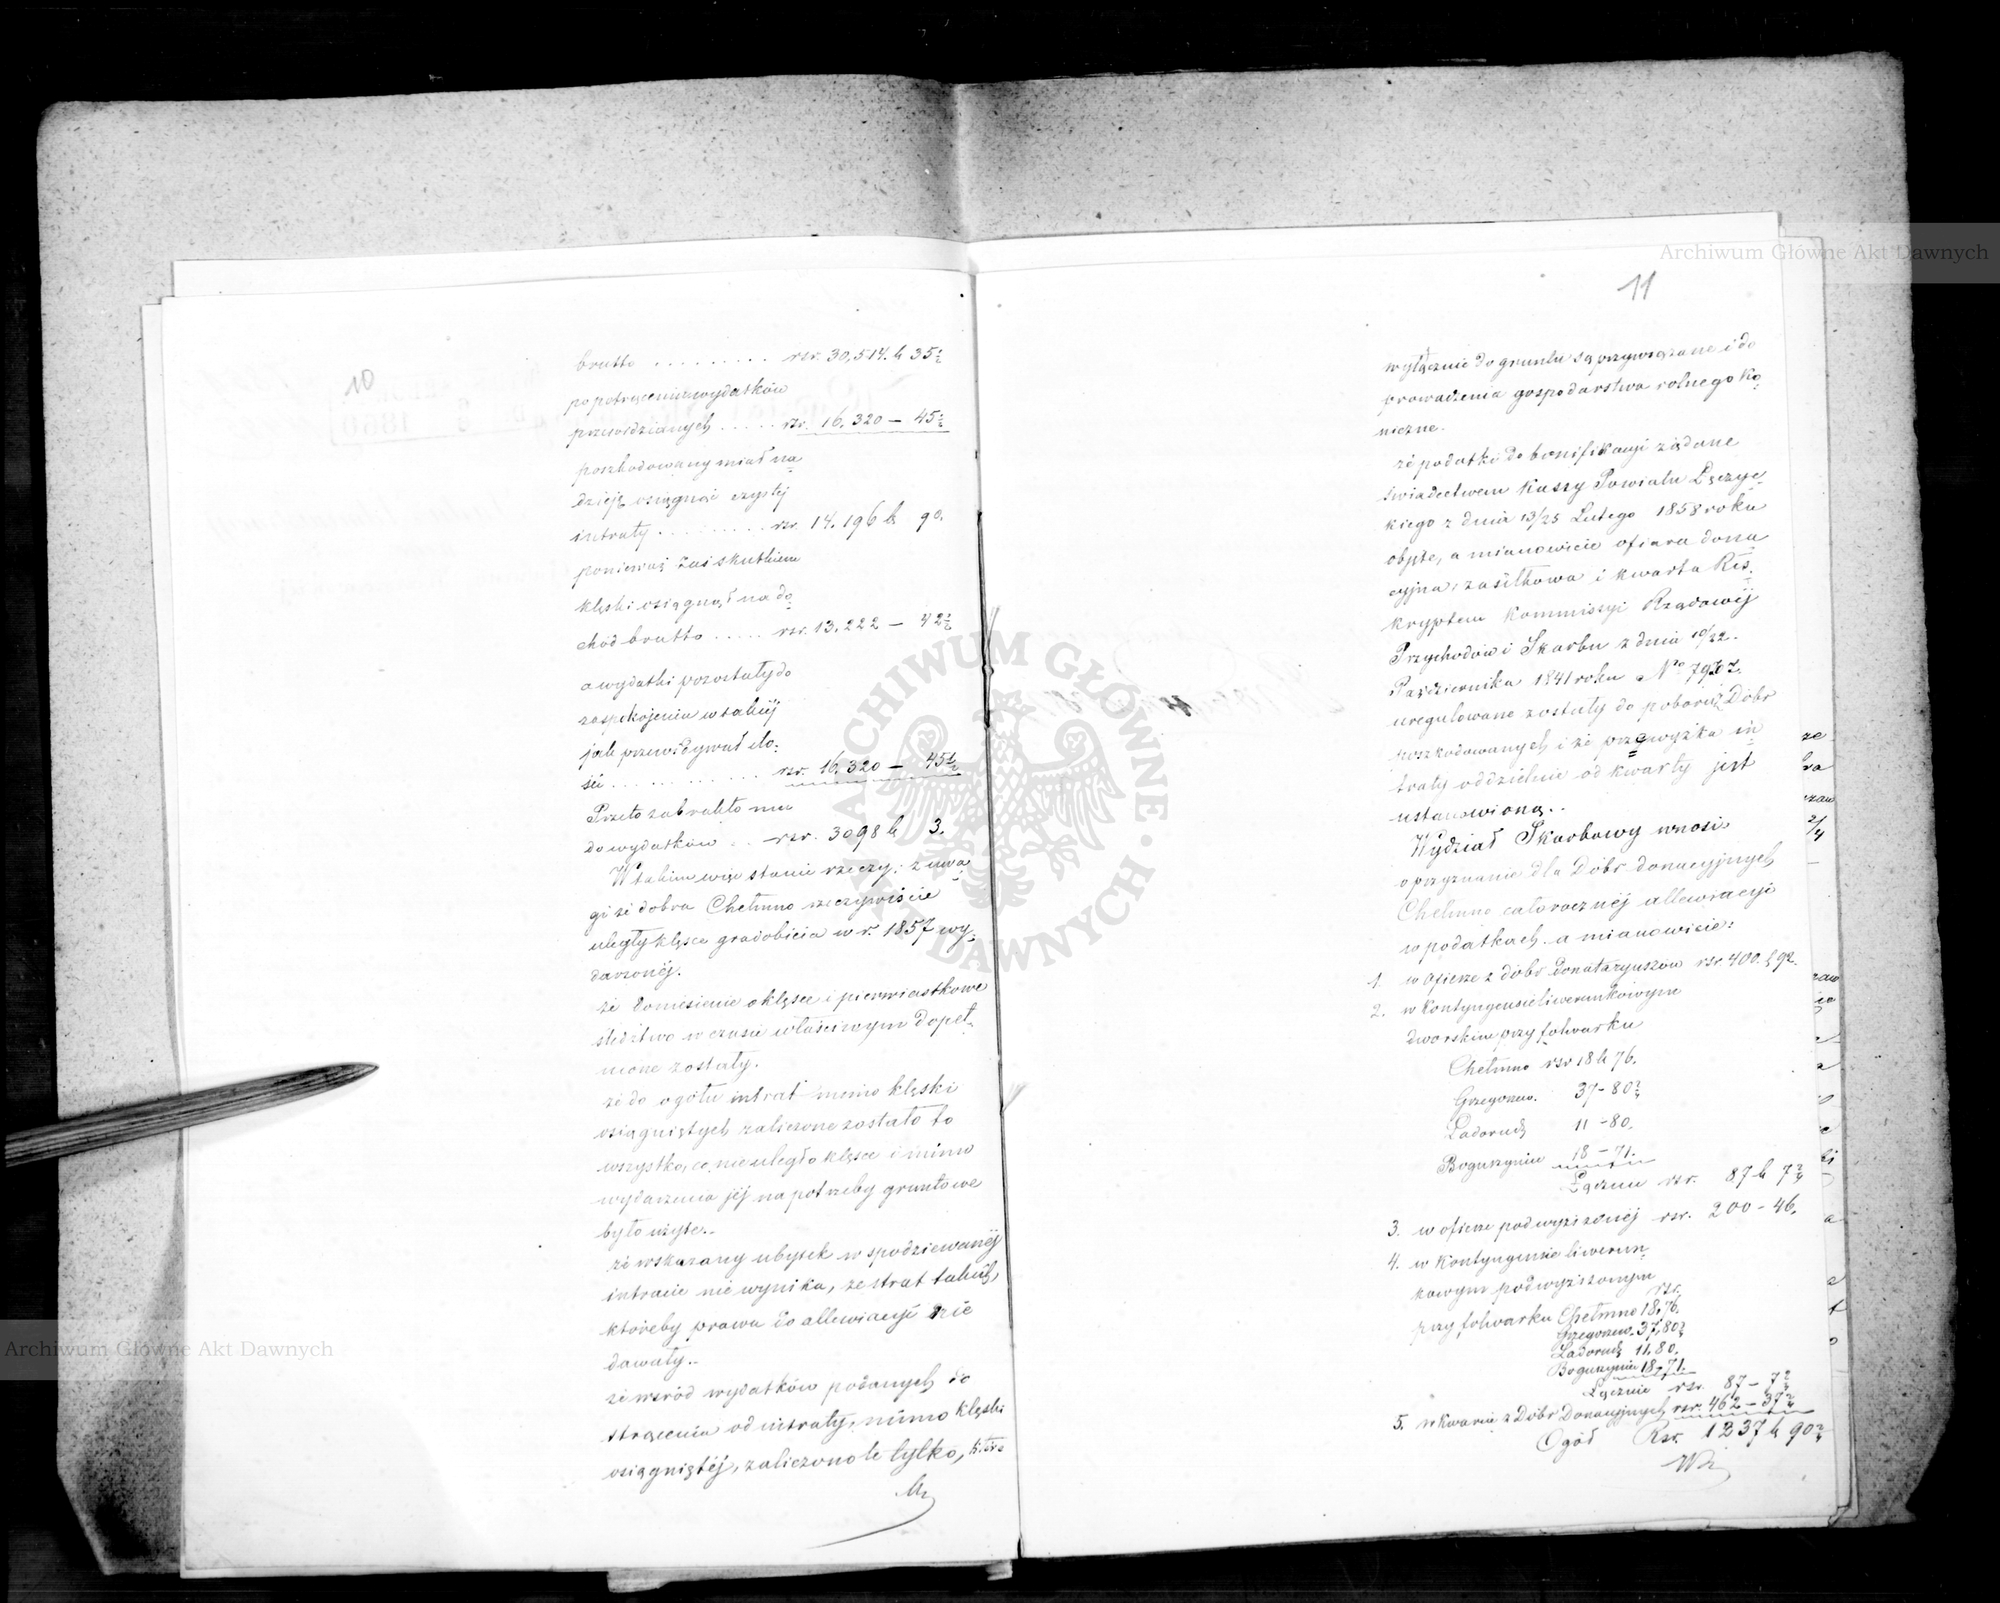 10
brutto . . . . . . . . . rsr. 30,514. k 35½
po potrąceniu wydatków
przewidzianych . . . . . rsr. 16,320 – 45½
poszkodowany miał na-
dzieję osiągnąć czystej
intraty . . . . . . . . rsr. 14.196 k 90.
ponieważ zaś skutkiem
klęski osiągnął na do-
chód brutto . . . . . rsr. 13.222 – 42½
a wydatki pozostały do
zaspokojenia w takiéj
jak przewidywał ilo-
ści . . . . . . . . . rsr. 16.320 – 45½
Przeto zabrakło mu
do wydatków . . rsr. 3098 k 3.
W takim więc stanie rzeczy: z uwa-
gi że dobra Chełmno rzeczywiście
uległy klęsce gradobicia w r. 1857 wy-
darzonéj.
że doniesienie o klęsce i pierwiastkowe
śledztwo w czasie właściwym dopeł-
nione zostały.
że do ogółu intrat mimo klęski
osiągniętych zaliczone zostało to
wszystko, co nie uległo klęsce i mimo
wydarzenia jéj na potrzeby gruntowe
było użyte..
że wskazany ubytek w spodziewanéj
intracie nie wynika, ze strat takich,
któreby prawa do allewiacyi nie
dawały..
że wśród wydatków podanych do
strącenia od intraty, mimo klęski
osiągniętéj, zaliczono te tylko, które
11
wyłącznie do gruntu są przywiązane i do
prowadzenia gospodarstwa rolnego ko-
nieczne.
że podatki do bonifikacyi żądane
świadectwem Kassy Powiatu Łęczyc-
kiego z dnia 13/25 Lutego 1858 roku
objęte, a mianowicie ofiara dona-
cyjna, zasiłkowa i kwarta Res-
kryptem Kommissyi Rządowéj
Przychodów i Skarbu z dnia 10/22.
Października 1841 roku No 7977.
uregulowane zostały do poboru z Dóbr
poszkodowanych i że przewyżka in-
traty oddzielnie od kwarty jest
ustanowioną..
Wydział Skarbowy wnosi
o przyznanie dla Dóbr donacyjnych
Chełmno całorocznéj allewiacyi
w podatkach a mianowicie:
1. w ofierze z dóbr Donataryuszów rsr. 400. k 92.
2. w Kontyngensie liwerunkowym
dworskim przy folwarku
Chełmno rsr 18 k 76.
Grzegorzew. 37 – 80¾
Ladorudz 11 – 80.
Boguszyniec 18 – 71.
Łącznie rsr. 87 k 7¾
3. w ofierze podwyższonéj rsr. 200 – 46.
4. w Kontyngensie liwerun-
kowym podwyższonym
rsr.
przy folwarku Chełmno 18,76.
Grzegorzew. 37,80¾
Ladorudz 11,80.
Boguszyniec 18,71.
Łącznie rsr. 87 – 7¾
5. w kwarcie z Dóbr Donacyjnych rsr. 462 – 37¾
Ogół Rsr. 1237 k 90¾
Archiwum Główne Akt Dawnych
Archiwum Główne Akt Dawnych
ARCHIWUM GŁÓWNE AKT DAWNYCH